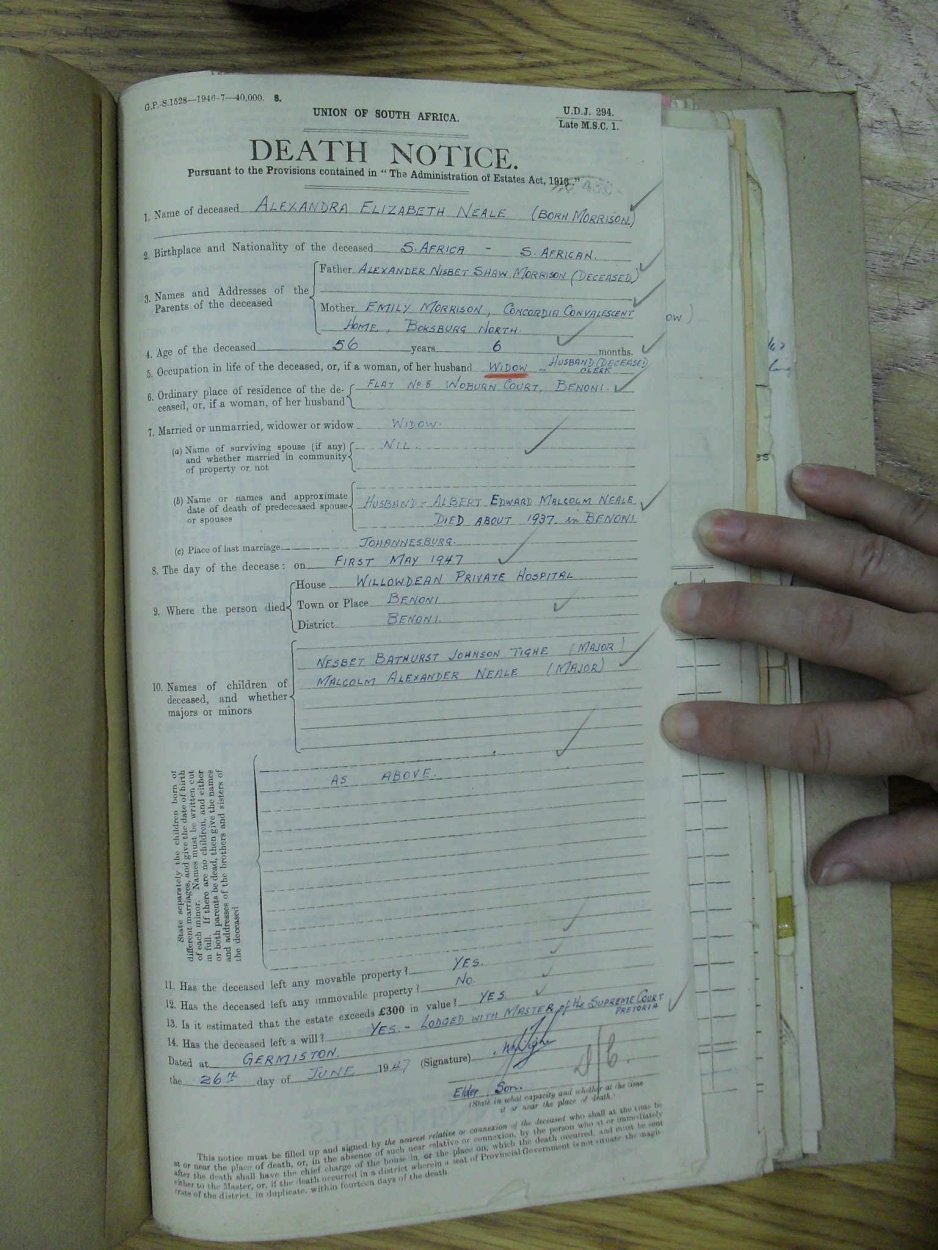 G.P.-S.1528—1946-7—40,000. S.
UNION OF SOUTH AFRICA.
U.D.J. 294.
Late M.S.C. 1.
DEATH NOTICE.
Pursuant to the Provisions contained in "The Administration of Estates Act, 1913."
1. Name of deceased ALEXANDRA ELIZABETH NEALE (BORN MORRISON)
2. Birthplace and Nationality of the deceased S. AFRICA - S. AFRICAN.
3. Names and Addresses of the Parents of the deceased
Father ALEXANDER NISBET SHAW MORRISON (DECEASED)
Mother EMILY MORRISON, CONCORDIA CONVALESCENT
HOME, BOKSBURG NORTH.
4. Age of the deceased 56 years 6 months.
5. Occupation in life of the deceased, or, if a woman, of her husband WIDOW - HUSBAND (DECEASED) CLERK
6. Ordinary place of residence of the de-
ceased, or, if a woman, of her husband
FLAT No 8 WOBURN COURT, BENONI.
7. Married or unmarried, widower or widow WIDOW.
(a) Name of surviving spouse (if any)
and whether married in community
of property or not
NIL.
(b) Name or names and approximate
date of death of predeceased spouse
or spouses
HUSBAND - ALBERT EDWARD MALCOLM NEALE
DIED ABOUT 1937 in BENONI
(c) Place of last marriage JOHANNESBURG.
8. The day of the decease: on FIRST MAY 1947
9. Where the person died
House WILLOWDEAN PRIVATE HOSPITAL
Town or Place BENONI
District BENONI.
10. Names of children of
deceased, and whether
majors or minors
NESBET BATHURST JOHNSON TIGHE (MAJOR)
MALCOLM ALEXANDER NEALE (MAJOR)
State separately the children born of
different marriages, and give the date of birth
of each minor. Names must be written out
in full. If there are no children, and either
or both parents be dead, then give the names
and addresses of the brothers and sisters of
the deceased
AS ABOVE.
11. Has the deceased left any movable property? YES.
12. Has the deceased left any immovable property? NO.
13. Is it estimated that the estate exceeds £300 in value? YES
14. Has the deceased left a will? YES. - LODGED WITH MASTER of the SUPREME COURT
PRETORIA
Dated at GERMISTON.
the 26th day of JUNE 1947 (Signature)
Elder Son.
(State in what capacity and whether at the time
it or near the place of death.)
This notice must be filled up and signed by the nearest relative or connexion of the deceased who shall at the time be
at or near the place of death, or, in the absence of such near relative or connexion, by the person who at or immediately
after the death shall have the chief charge of the house in, or the place on, which the death occurred, and must be sent
either to the Master, or, if the death occurred in a district wherein a seat of Provincial Government is not situate the magis-
trate of the district, in duplicate, within fourteen days of the death